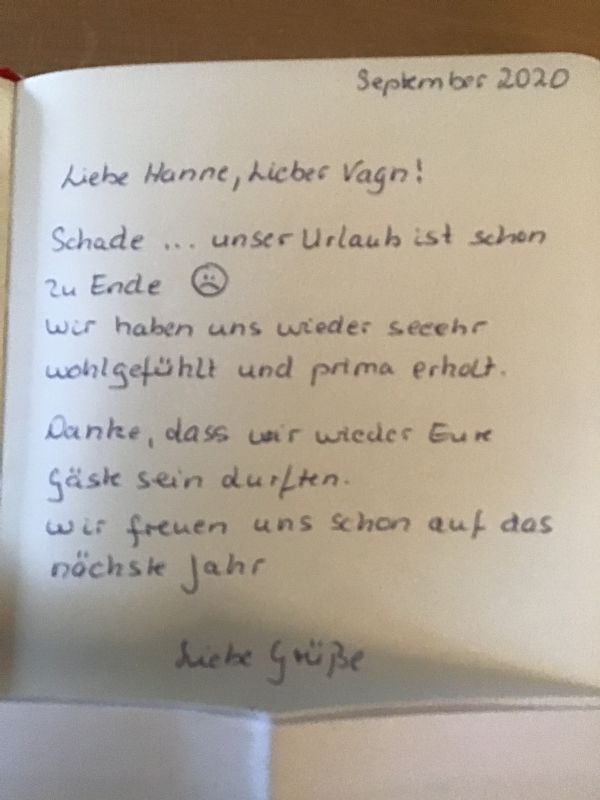 September 2020
Liebe Hanne, Lieber Vagn!
Schade ... unser Urlaub ist schon
zu Ende ☹
wir haben uns wieder seeehr
wohlgefühlt und prima erholt.
Danke, dass wir wieder Eure
Gäste sein durften.
wir freuen uns schon auf das
nächste Jahr
Liebe Grüße